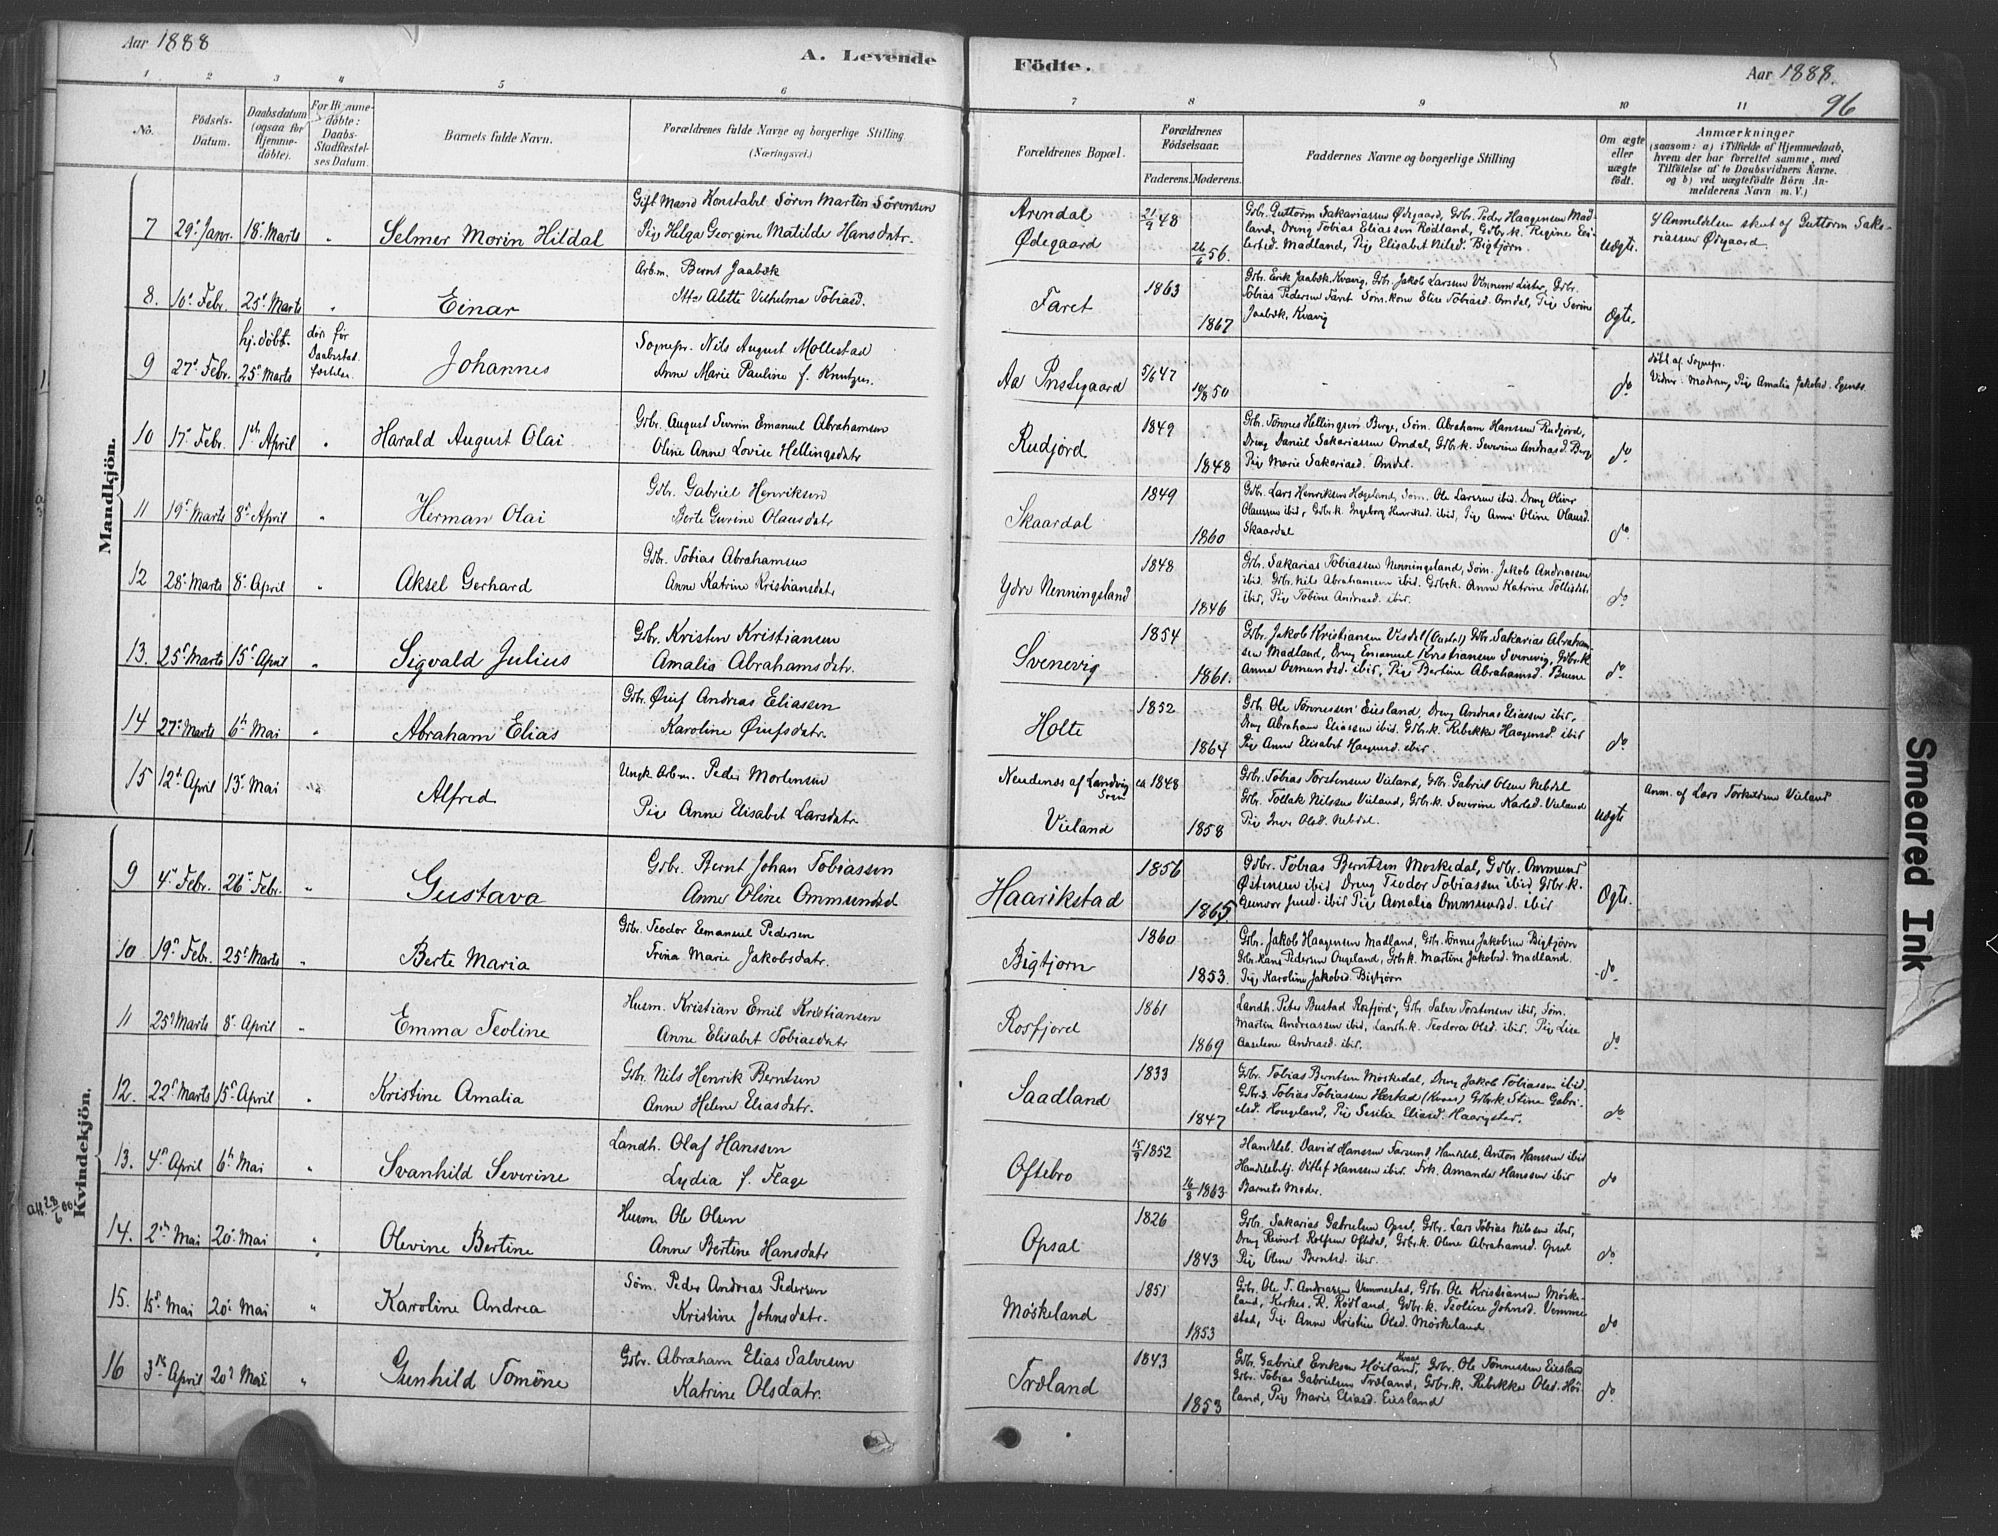 Aar 1888
A. Levende
Födte.
Aar 1888.
96
1 2 3 4 5 6 7 8 9 10 11
No.
Födsels-
Datum.
Daabsdatum
(ogsaa for
Hjemme-
döbte).
For Hjemme-
döbte:
Daabs-
Stadfæstel-
ses Datum.
Barnets fulde Navn.
Forældrenes fulde Navne og borgerlige Stilling.
(Næringsvei.)
Forældrenes Bopæl.
Forældrenes
Födselsaar.
Faderens.
Moderens.
Faddernes Navne og borgerlige Stilling
Om ægte
eller
uægte
födt.
Anmærkninger
(saasom: a) i Tilfælde af Hjemmedaab,
hvem der har forrettet samme, med
Tilföielse af to Daabsvidners Navne.
og b) ved uægtefödte Börn An-
melderens Navn m. V.)
Mandkjön.
7 29. Janr. 18. Marts " Selmer Morin Hildal
Gift Mand Konstabel Sören Martin Sörensen
Pig Helga Georgine Matilde Hansdatr.
Arendal
Ødegaard
21/9 48
26/6 56.
Gbr. Guttorm Sakariassen Ødegaard, Gbr. Peder Haagensen Mad-
land, Dreng Tobias Eliassen Rödland, Gdbr.k. Regine Ei-
lertsd. Madland, Pig Elisabet Nilsd. Bigtjörn.
Uægte.
Anmeldelsen skut af Guttorm Saka-
riassen Ødegaard
8. 10. Febr. 25. Marts " Einar
Arbm. Bernt Jaabæk
Alette Vilhelma Tobiasd.
Faret
1863
1867
Gbr. Erik Jaabæk Kvavig, Gbr. Jakob Larsen Vennem Lister, Gbr.
Tobias Pedersen Faret Söm. kone Elise Tobiasd. Omdal, Pig Serine
Jaabæk, Kvavig
Ægte.
9 27. Febr. hj. döbt.
25. Marts
död för
Daabsstad-
fæstelse.
Johannes
Sognepr. Nils August Mollestad
Anne Marie Pauline f. Knutzen.
Aa Præstegaard
5/6 47
10/8 50
do
döbt af Sognepr.
Vidner: Moderen, Pig Amalia Jakobsd.
10 17. Febr. 1ste April " Harald August Olai
Gbr. August Severin Emanuel Abrahamsen
Oline Anne Lovise Hellingsdatr
Rudjord
1849
1848
Gbr. Tönnes Hellingsen Berge, Söm. Abraham Hansen Rudjord,
Dreng Daniel Sakariassen Omdal, Gdbr.k. Severine Andreasd. Berg
Pig Marie Sakariasd. Omdal.
do
11 19. Marts 8. April " Herman Olai
Gdbr. Gabriel Henriksen
Berte Gurine Olausdatr
Skaardal
1849
1860
Gdbr. Lars Henriksen Hægeland, Söm. Ole Larssen ibid. Dreng Oliver
Olaussen ibid, Gdbr.k. Ingeborg Henriksd. ibid, Pig Anne Oline Olausd.
Skaardal
do
12 28. Marts 8. April " Aksel Gerhard
Gdbr. Tobias Abrahamsen
Anne Katrine Kristiansdatr
Ydre Nenningsland
1848
1846
Gbr. Sakarias Tobiassen Nenningsland, Söm. Jakob Andreassen
ibid. Gbr. Nils Abrahamsen ibid. Gdbr.k. Anne Katrine
ibid, Pig Tobine Andreasd. ibid.
do
13. 25. Marts 15. April " Sigvald Julius
Gbr. Kristen Kristiansen
Amalia Abrahamsdatr.
Svenevig
1854
1861.
Gbr. Jakob Kristiansen Visdal Gbr. Sakarias Abraham-
sen Madland, Dreng Emanuel Kristiansen Svenevig, Gdbr.k
Anne Osmundsd. ibid, Pig Bertine Abrahamsd.
do
14 27. Marts 6te Mai " Abraham Elias
Gbr. Øruf Andreas Eliassen
Karoline Ørufsdatr.
Holte
1852
1864
Gbr. Ole Tönnessen Eiesland, Dreng Andreas Eliassen ibid,
Dreng Abraham Eliassen ibid. Gdbr.k. Rebekke Haagensd. ibid
Pig Anne Elisabet Haagensd. ibid.
do
15 12t. April 13. Mai Alfred
Ungk. Arbm. Peder Mortensen
Pige Anne Elisabet Larsdatr.
Nendenæs af Landvig
Sogn
Vieland
ca 1848
1858
Gbr. Tobias Torstensen Vieland, Gbr. Gabriel Olsen Nebdal
Gbr. Tollak Nilssen Vieland, Gdbr.k. Severine Karlsd. Vieland
Pig Inger Olsd. Nebdal.
Uægte
Anm. af Lars Torkildsen Vieland
Kvindekjön.
9 4. Febr. 26. Febr. " Gustava
Gdbr. Bernt Johan Tobiassen
Anne Oline Ommundsd
Haarikstad
1856
1865
Gdbr. Tobias Berntsen Moskedal, Gdbr. Ommund
Östensen ibid Dreng Teodor Tobiassen ibid Gdbr.k.
Gunvor ibid Pig Amalia Ommundsd. ibid
Ægte.
10 19. Febr. 25. Marts " Berte Maria
Gbr. Teodor Emanuel Pedersen
Trina Marie Jakobsdatr.
Bigtjorn
1860
1853.
Gbr. Jakob Haagensen Madland, Gbr. Tönnes Jakobsen Bigtjörn
Gbr. Hans Pedersen Augeland, Gdbr.k. Martine Jakobsd. Madland.
Pig Karoline Jakobsd. Bigtjörn
do.
11 25. Marts 8. April " Emma Teoline
Husm. Kristian Emil Kristiansen
Anne Elisabet Tobiasdatr
Rosfjord
1861
1869
Landh. Peter Bustad Rosfjord, Gbr. Salve Torstensen ibid, Söm.
Martin Andreassen ibid, Landh.k. Teodora Olsd. ibid, Pig Lise
Aaselene Andreasd. ibid.
do
12. 22. Marts 15. April " Kristine Amalia
Gbr. Nils Henrik Berntsen
Anne Helene Eliasdatr.
Saadland
1833
1847
Gbr. Tobias Berntsen Möskedal, Dreng Jakob Tobiassen ibid.
Gdbr.s. Tobias Tobiassen Hæstad (Kvaas) Gdbr.k. Stine Gabri-
elsd. Hougeland, Pig Sesilie Eliasd. Haarigstad.
do
13. 4. April 6te Mai " Svanhild Severine
Landh. Olaf Hanssen
Lydia f. Flage
Oftebro
15/9 1852
16/8 1863
Handelsb. David Hanssen Farsund, Handelsb. Anton Hanssen ibid
Handelsbetj. Ditlef Hanssen ibid. Frk. Amanda Hanssen ibid
Barnets Moder.
do
att. 28/6 00
14. 2den Mai 20. Mai " Olevine Bertine
Husm. Ole Olsen
Anne Bertine Hansdatr
Opsal
1826
1843
Gbr. Sakarias Gabrielsen Opsal, Gbr. Lars Tobias Nilsen ibid,
Dreng Reinert Rolfsen Oftedal, Gdbr.k. Oline Abrahamsd. Opsal
Pig Olene Berntsd. ibid.
do
15. 15. Mai 20. Mai " Karoline Andrea
Söm. Peder Andreas Pedersen
Kristine Johnsdatr.
Möskeland
1851
1853
Gbr. Ole T. Andreassen Vemmestad, Gbr. Ole Kristiansen Möske-
land, Kirkes. R. Rödland, Gdbr.k. Teoline Johnsd. Vemme-
stad, Pig Anne Kristine Olsd. Möskeland
do
16 3die April 20. Mai " Gunhild Tomöne
Gdbr. Abraham Elias Salvesen
Katrine Olsdatr.
Træland
1843
1853
Gbr. Gabriel Eriksen Höiland Kvaas, Gbr. Ole Tönnessen Eiesland
Gbr. Tobias Gabrielsen Træland, Gdbr.k. Rebekka Olsd. Höi-
land, Pig Marie Eliasd. Eiesland
do.
Smeared Ink